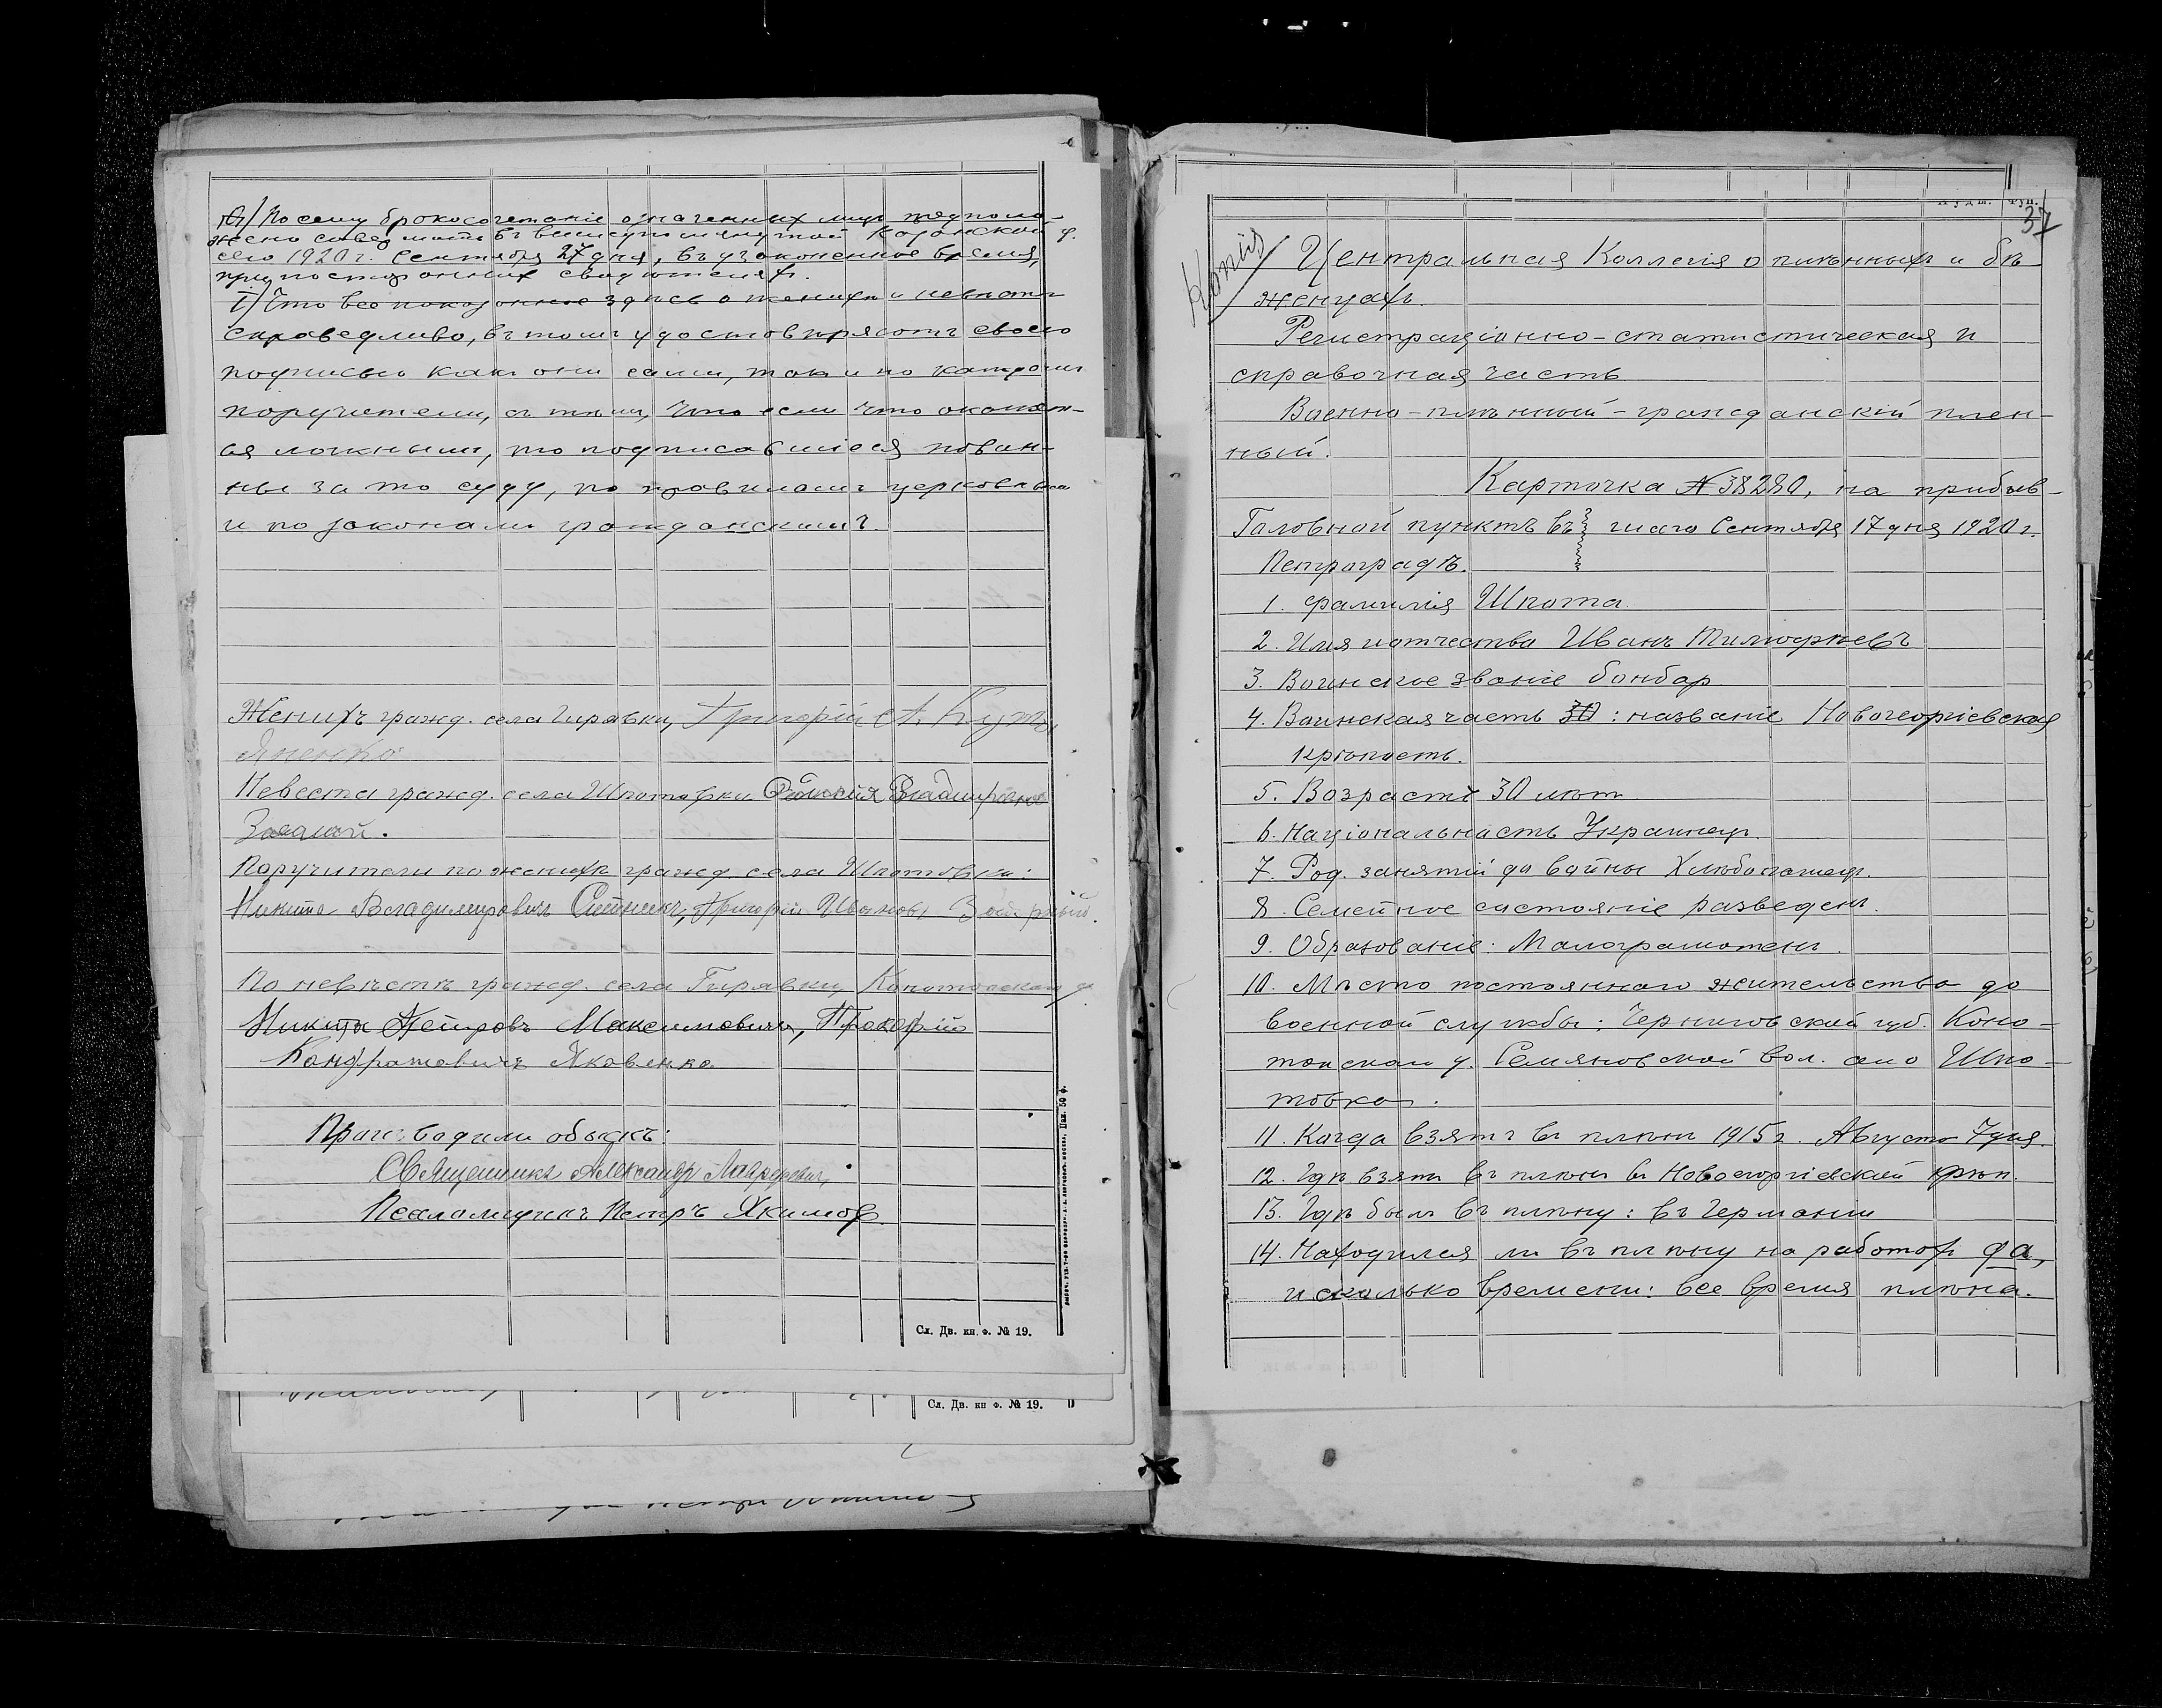 Ѳ) По сему бракосочетаніе означенныхъ лицъ предполо-
жено совершить въ вышеупомянутой Казанской ц.
сего 1920 г. Сентября 27 дня, въ узаконенное время,
при постороннихъ свидѣтеляхъ.
і) Что все показанное здѣсь о женихѣ и невѣстѣ
справедливо, въ томъ удостовѣряютъ своею
подписью какъ они сами, такъ и по каждомъ
поручители, съ тѣмъ, что если что окажет-
ся ложнымъ, то подписавшіеся повин-
ны за то суду, по правиламъ церковнымъ
и по законамъ гражданскимъ.
Женихъ гражд. села Гирявки, Григорій
Невеста гражд. села Шпотовки
Поручители по женихѣ гражд. села Шпотовки:
Никита Владимировичъ Ситникъ, Григорій Ивановъ
По невѣстѣ гражд. села Гирявки Конотопскаго у.
Никита Петровъ Максимовичъ, Прокофій
Кондратовичъ Яковенко
Производили обыскъ:
Священникъ Александръ
Псаломщикъ Петръ Якимов
Сл. Дв. кн. ф. № 19.
Сл. Дв. кн ф. № 19.
37
Копія
Центральная Коллегія о плѣнныхъ и бѣ
женцахъ.
Регистраціонно-статистическая и
справочная часть
Военно-плѣнный-гражданскій плен-
ный.
Карточка № 38280, на прибыв-
Головной пунктъ въ шаго Сентября 17 дня 1920 г.
Петроградъ.
1. Фамилія Шпота
2. Имя иотчества Иванъ Тимофеевъ
3. Воинское званіе бонбар
4. Воинская часть 30: названіе Новогеоргіевская
крѣпость.
5. Возрастъ 30 лѣт
6. Національность Украинец.
7. Род. занятій до войны Хлѣбопашец.
8. Семейное состояніе разведен.
9. Образованіе: Малограмотенъ.
10. Мѣсто постояннаго жительства до
военной службы: Черниговской губ. Коно-
топскаго у. Семяновской вол. село Шпо-
товка.
11. Когда взятъ въ плѣнъ 1915 г. Августа 7 дня.
12. Гдѣ взятъ въ плѣнъ въ Новогоргіевский крѣп.
13. Гдѣ былъ въ плѣну: въ Германіи
14. Находился ли въ плѣну на работах да,
и сколько времени: все время плѣна.